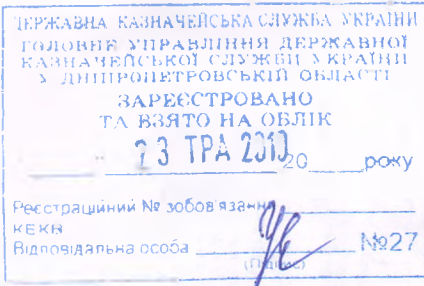 ДЕРЖАВНА КАЗНАЧЕЙСЬКА СЛУЖБА УКРАЇНИ
ГОЛОВНЕ УПРАВЛІННЯ ДЕРЖАВНОЇ
КАЗНАЧЕЙСЬКОЇ СЛУЖБИ УКРАЇНИ
У ДНІПРОПЕТРОВСЬКІЙ ОБЛАСТІ
ЗАРЕЄСТРОВАНО
ТА ВЗЯТО НА ОБЛІК
23 ТРА 20 року
Реєстраційний № зобов'язання
КЕКВ
Відповідальна особа №27
(Підпис)